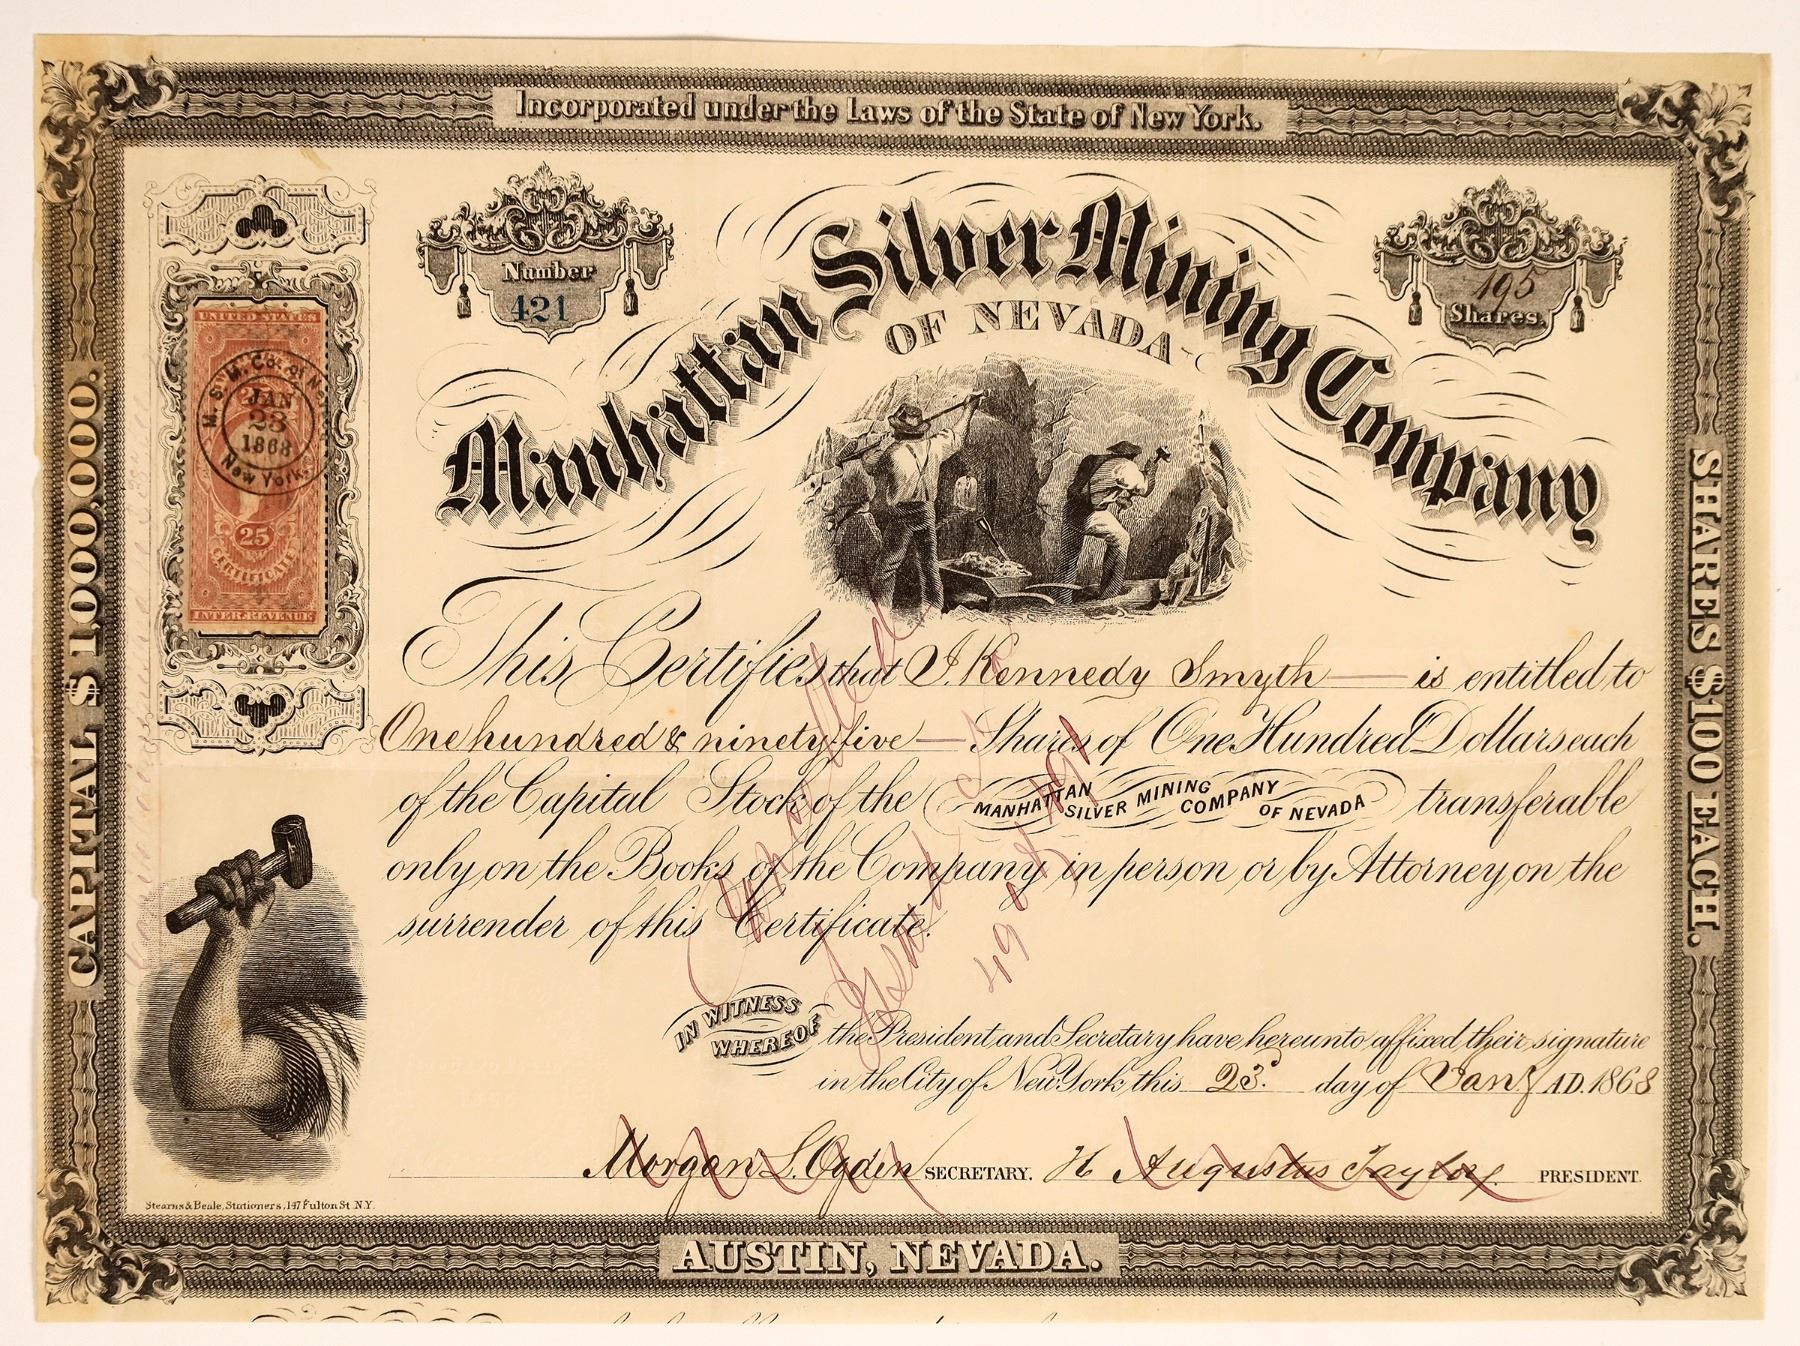 Incorporated under the Laws of the State of New York.
Number
421
195
Shares.
Manhattan Silver Mining Company
OF NEVADA
UNITED STATES
M. S. M. Co. of
JAN
23
1868
New York
25
CERTIFICATE
INTER. REVENUE
CAPITAL $1000.000.
SHARES $100 EACH.
This Certifies that J. Kennedy Smyth is entitled to
One hundred & ninety five Shares of One Hundred Dollars each
of the Capital Stock of the MANHATTAN SILVER MINING COMPANY OF NEVADA transferable
only on the Books of the Company in person or by Attorney, on the
surrender of this Certificate.
Cancelled
IN WITNESS WHEREOF the President and Secretary have hereunto affixed their signature
in the City of New York, this 23d. day of Jany A.D. 1868
Morgan L. Ogden SECRETARY. H Augustus Taylor. PRESIDENT.
Stearns & Beale, Stationers, 147 Fulton St N.Y.
AUSTIN, NEVADA.